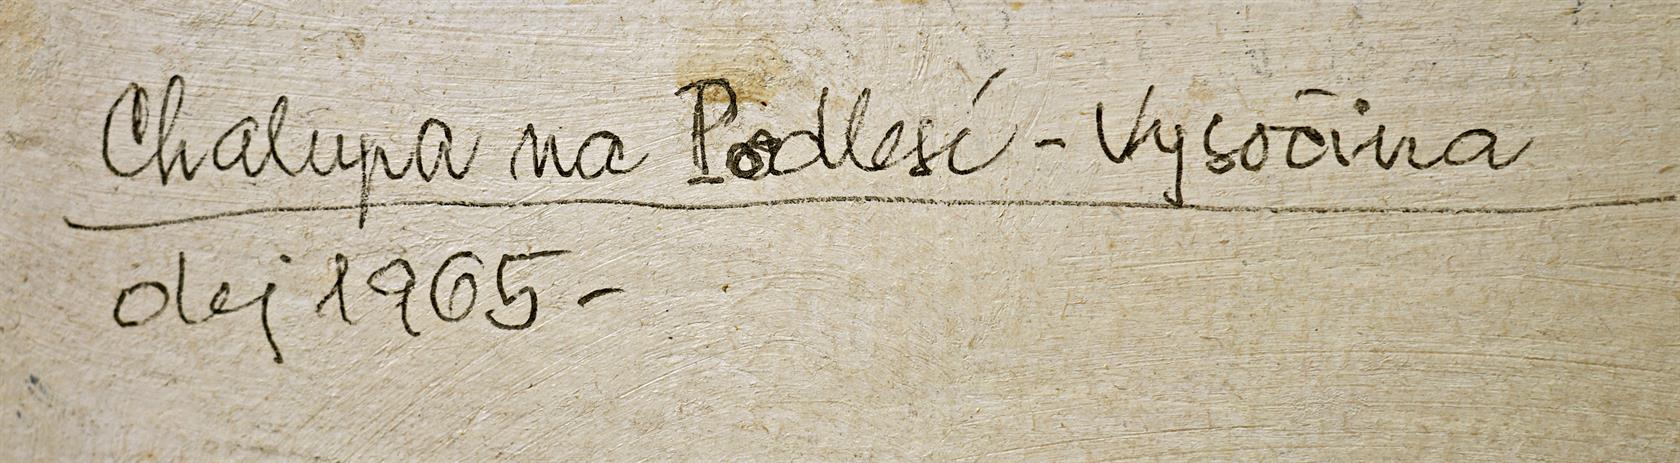 Chalupa na Podlesí - Vysočina
olej 1965-